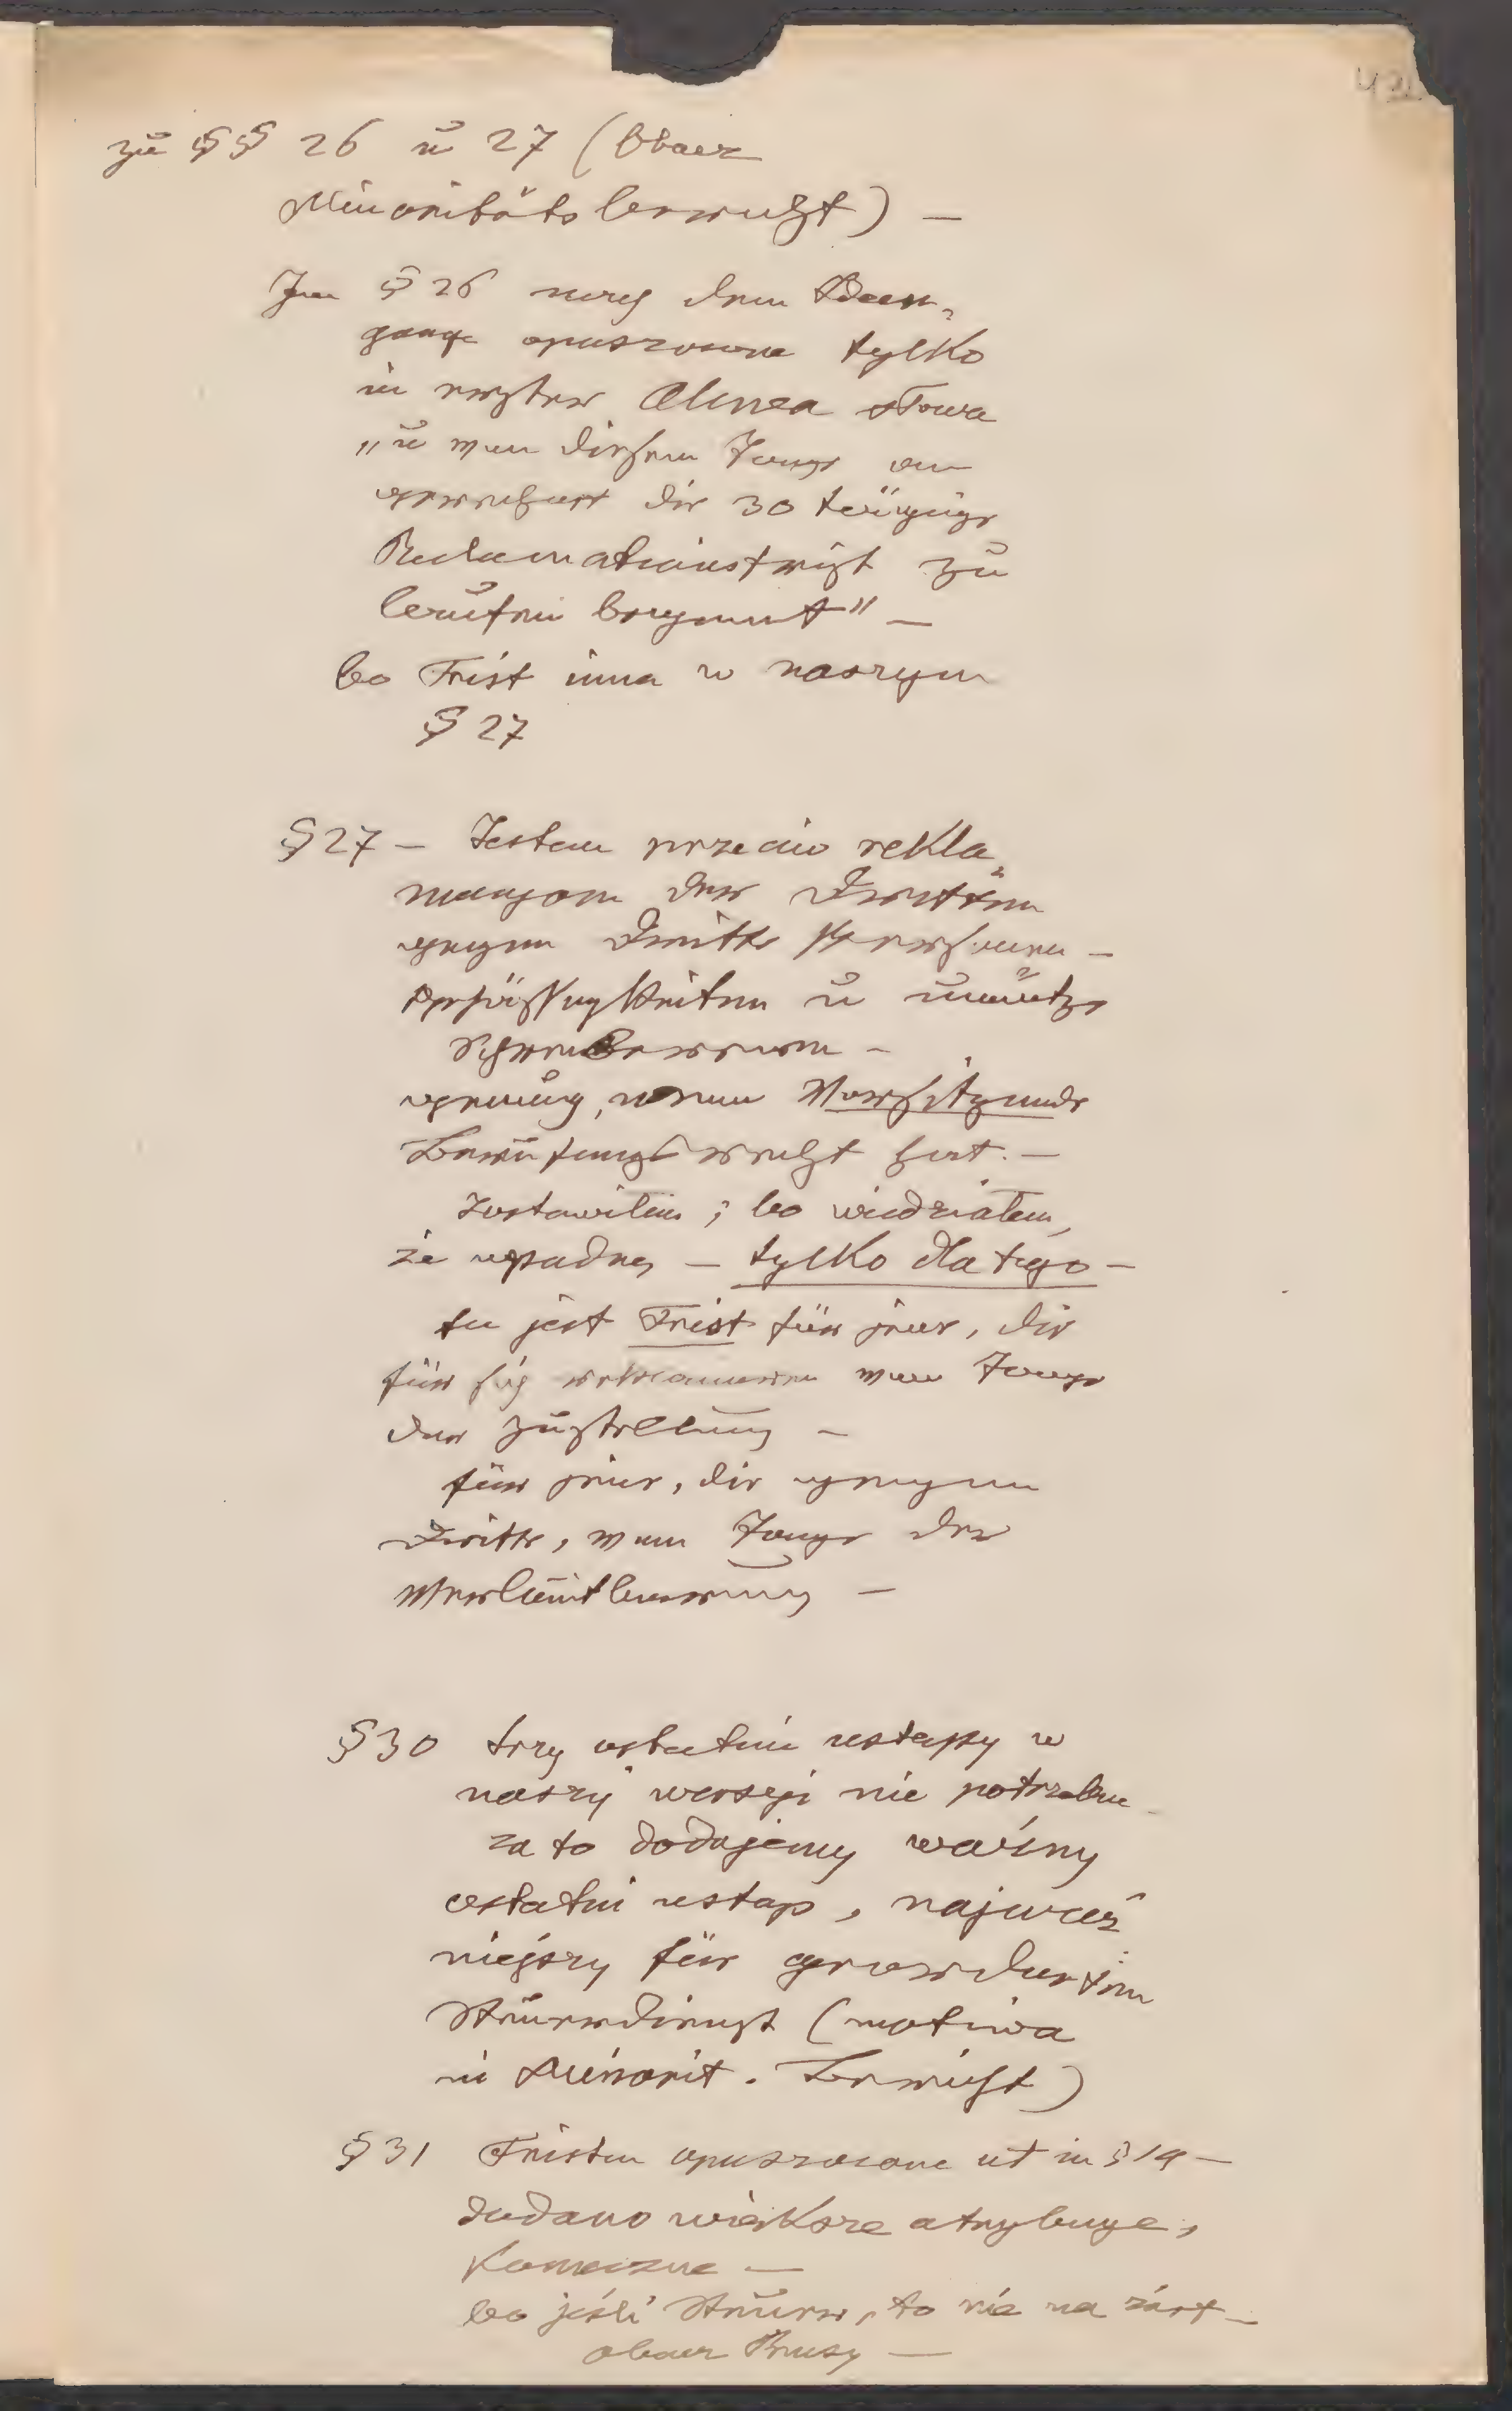 zu §§ 26 u 27 (Obacz
Minoritätsbericht) —
Im § 26 nach dem Ideen-
gange opuszczone tylko
in erster Alinea słowa
„u vom diesem Tage an
gerechnet die 30 tägige
Reclamationsfrist zu
laufen beginnt" —
bo Frist inna w naszym
§ 27
§ 27 — Jestem przeciw rekla-
macyom der Dritten
gegen Dritte Personen —
Gehässigkeiten u unnütze
genug, wenn Vorsitzende
Berufungsrecht hat. —
Zostawiłem; bo wiedziałem,
że upadnę — tylko dla tego —
tu jest Frist für jene, die
für sich reklamieren vom Tage
der Zustellung —
für jene, die gegen
Dritte, vom Tage der
Verlautbarung —
§ 30 trzy ostatnie ustępy w
naszej wersyi nie potrzebne
za to dodajemy ważny
ostatni ustęp, najważ
niejszy für
Steuerdienst (motiwa
in Minorit. Bericht)
§ 31 Fristen opuszczone ut in § 19 —
dodano większe atrybucye,
konieczne —
bo jeśli Steuer, to nie na żart —
obacz Prusy —